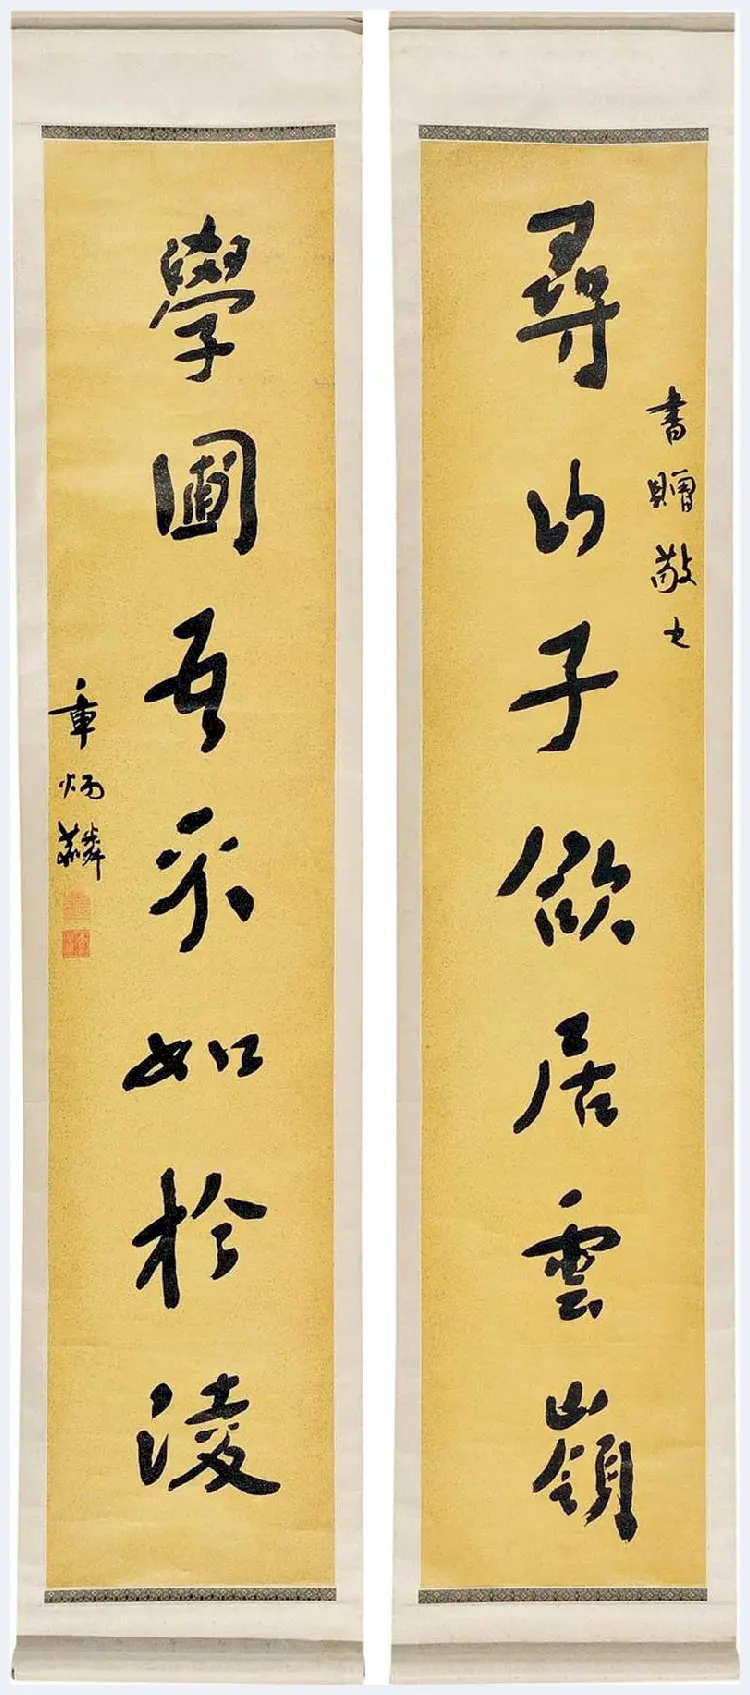 尋山子欲居雲嶺
書贈敬之
學圃吾不如於淩
章炳麟